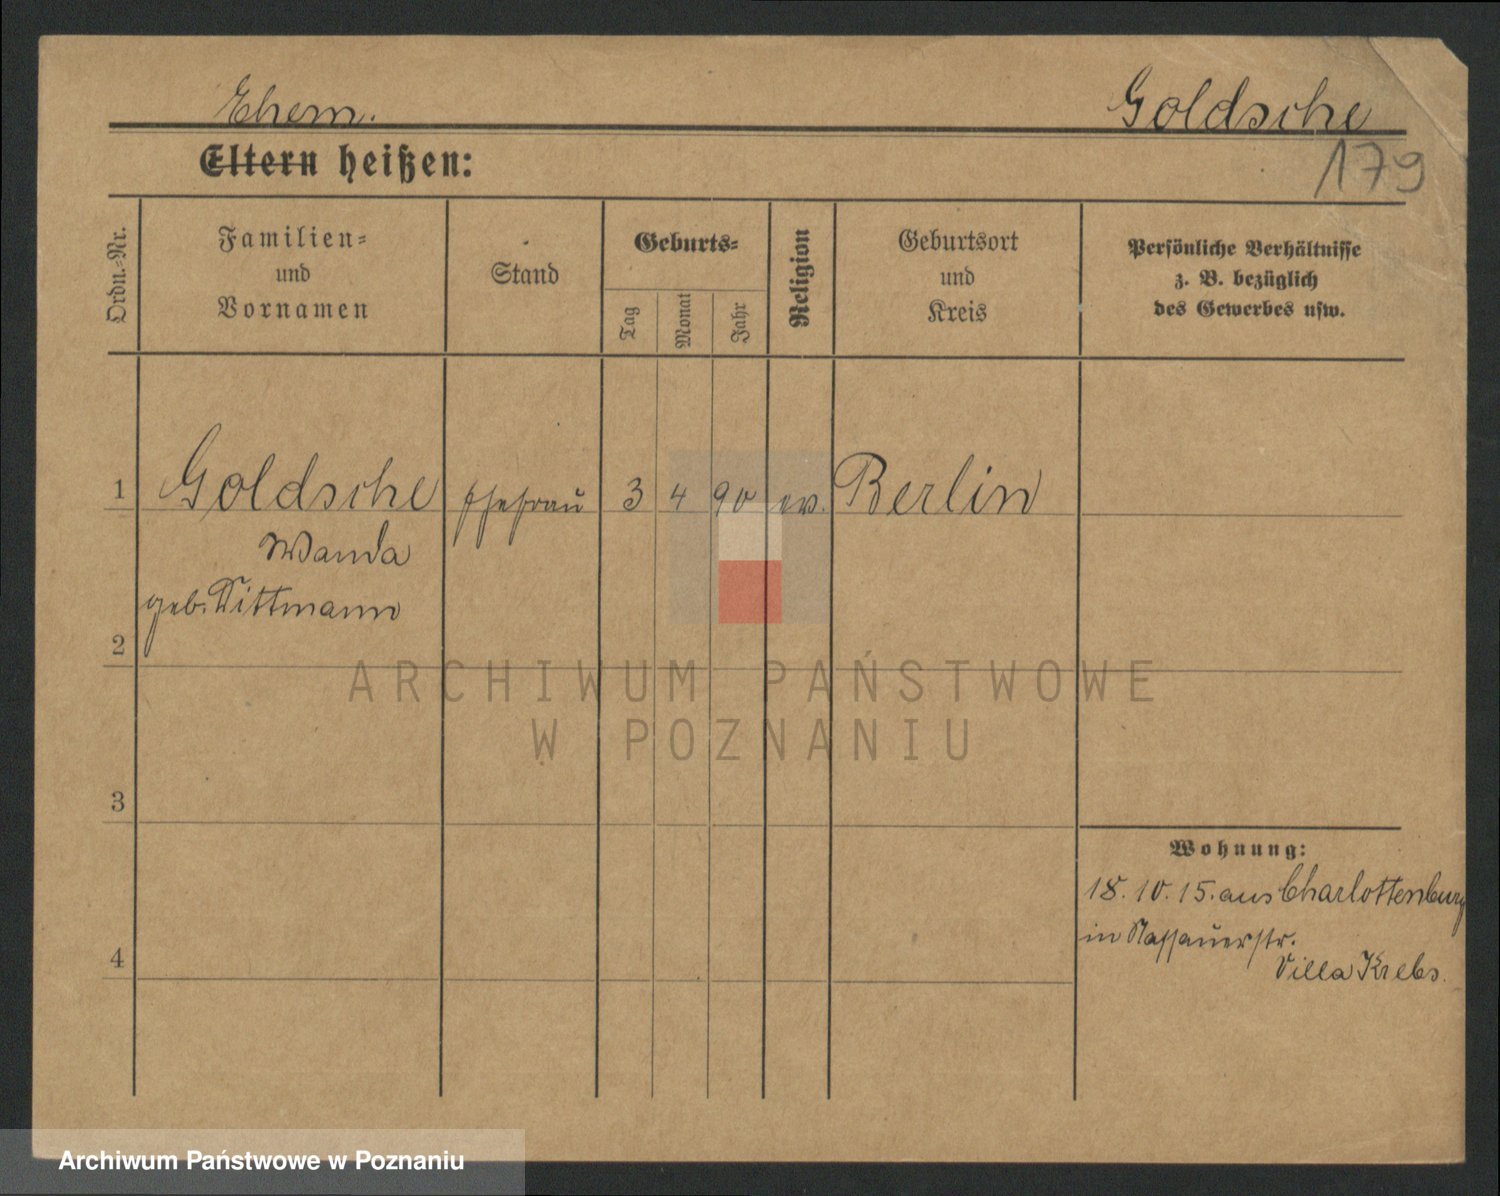 Ehem. Goldsche
Eltern heißen:
179
Ordn.-Nr.
Familien-
und
Vornamen
Stand
Geburts-
Tag
Monat
Jahr
Religion
Geburtsort
und
Kreis
Persönliche Verhältnisse
z. B. bezüglich
des Gewerbes usw.
1 Goldsche Ehefrau 3 4 90 ev. Berlin
Wanda
geb. Wittmann
2
ARCHIWUM PAŃSTWOWE
W POZNANIU
3
Wohnung:
18. 10. 15. aus Charlottenburg
in Nassauerstr.
Villa Krebs.
4
Archiwum Państwowe w Poznaniu